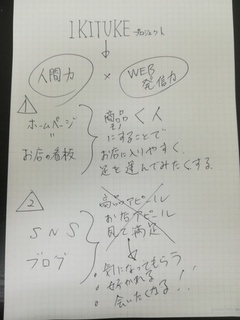 IKITUKE プロジェクト
人間力
×
WEB
発信力
1
ホームページ
お店の看板
商品 < 人
にすることで
お店に入りやすく、
足を運んでみたくする。
2
SNS
ブログ
商品アピール
お店アピール
見て満足
。気になってもらう
。好かれる
。会いたくなる!!